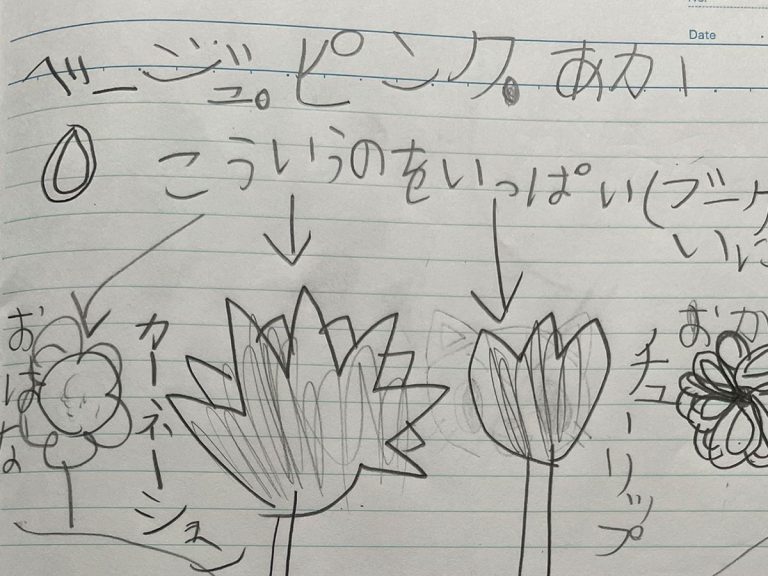 No.
Date
ベージュ。ピンク。あか
こういうのをいっぱい(ブーケ
いに
おはな
カーネーション
チューリップ
おか